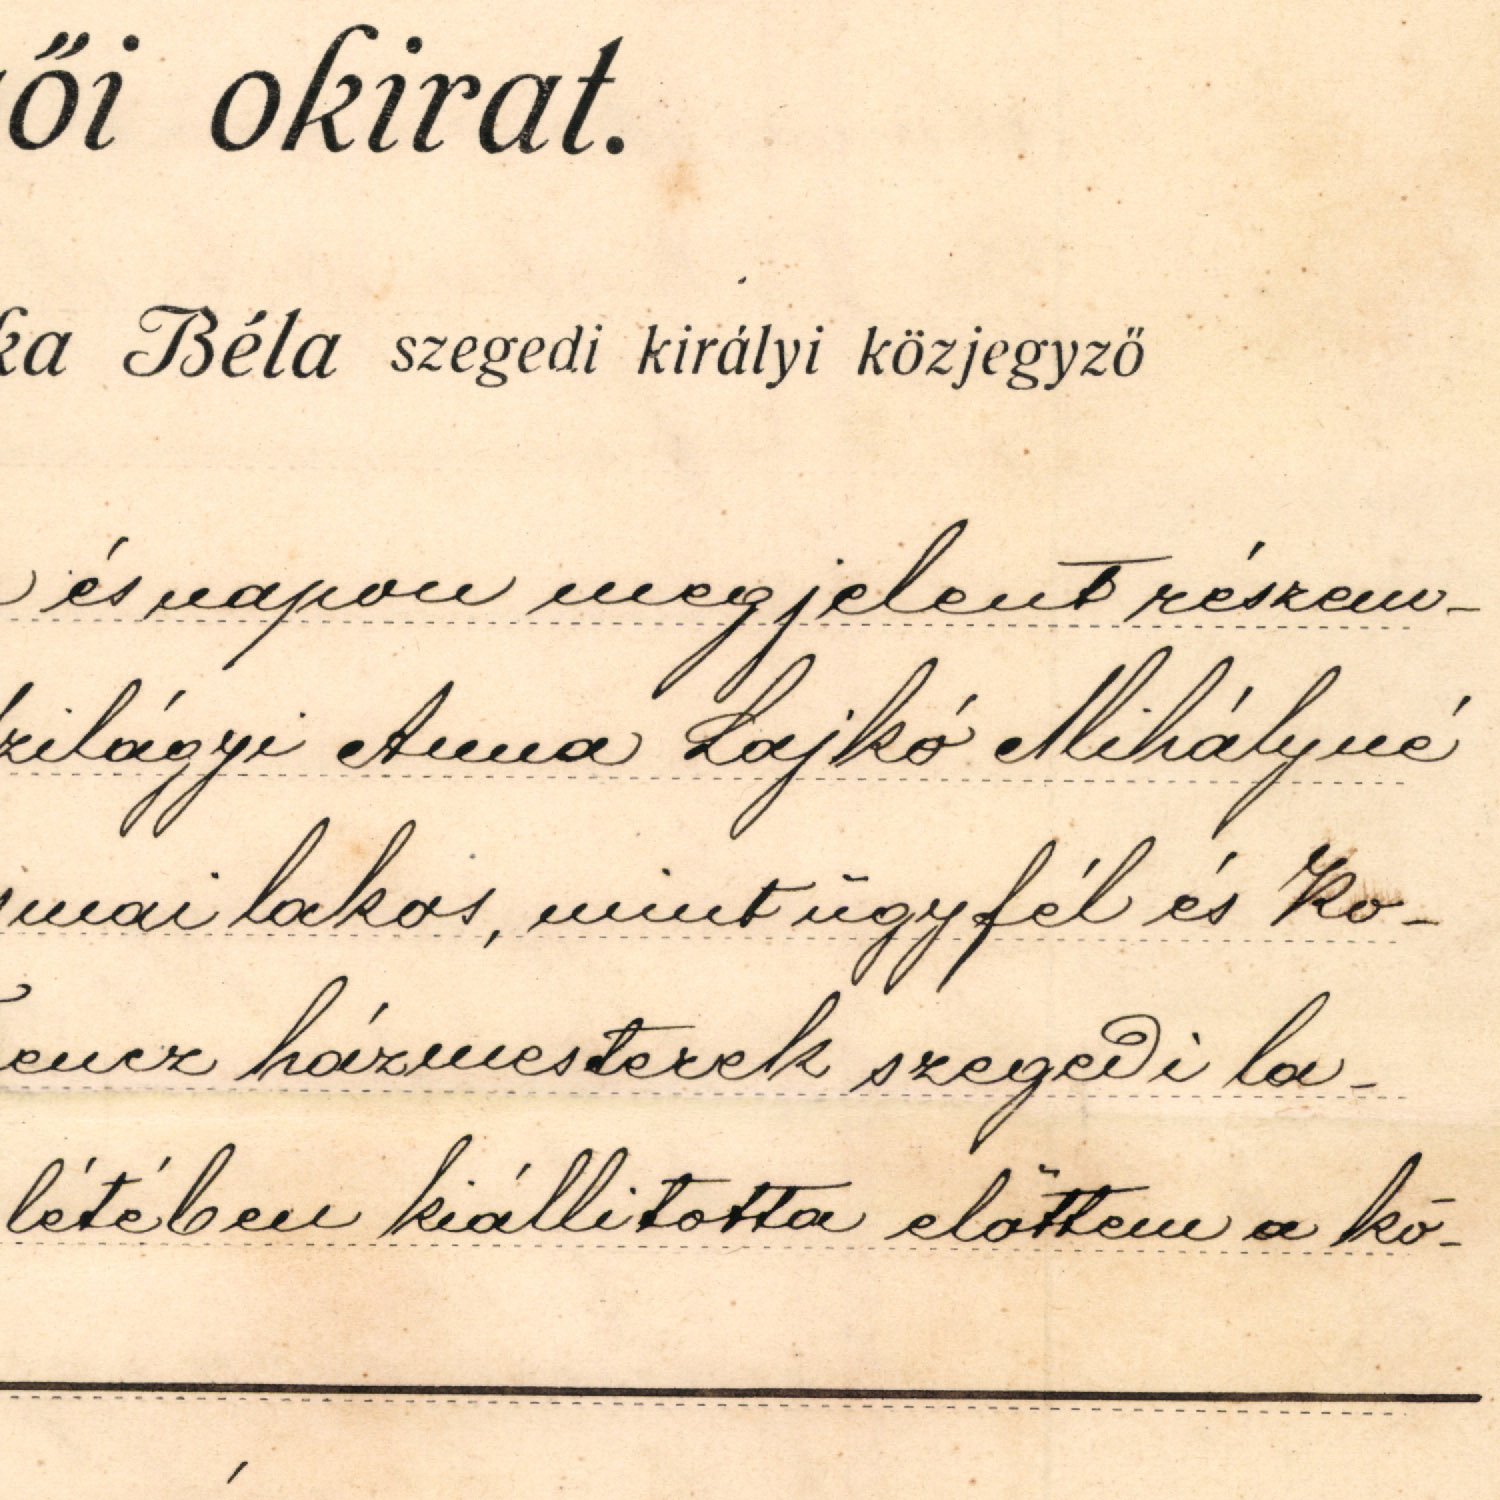 ői okirat.
ka Béla szegedi királyi közjegyző
és napon megjelent részem-
zilágyi Anna Lajkó Mihályné
mai lakos, mint ügyfél és Ko-
encz házmesterek szegedi la-
létében kiállitotta előttem a kö-